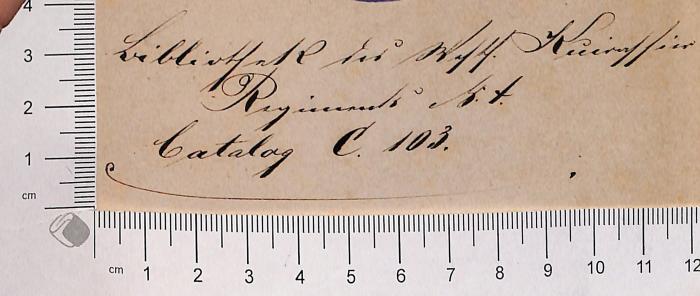 Bibliothek des Westf. Kuirassier
Regiments N. 4.
Catalog C. 103.
4
3
2
1
cm
cm 1 2 3 4 5 6 7 8 9 10 11 12